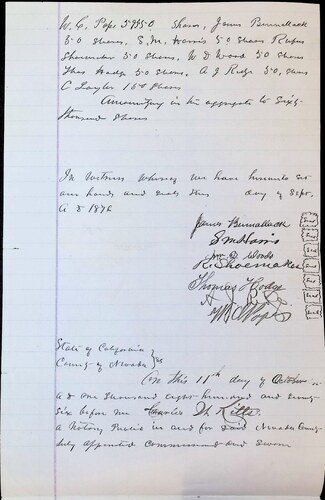 W. C. Pope 59550 Shares, James Bennallack
50 shares, S. M. Harris 50 Shares Rufus
Shoemaker 50 Shares, W D Wood 50 Shares
Thos Hodge 50 Shares. A J Ridge 50 Shares
C Layler 150 Shares
Amounting in the aggregate to sixty
thousand shares
In Witness Whereof we have hereunto set
our hands and seals this day of Sept.
A D 1876
James Bennallack
S M Harris
Wm D. Woods
R. Shoemaker
Thomas Hodge
A. J. R
W C Pope
State of California
County of Nevada } SS
On this 11th day of October
A D one thousand eight hundred and seventy
six before me Charles W. Kitts
a Notary Public in and for said Nevada County
duly appointed Commissioned and Sworn